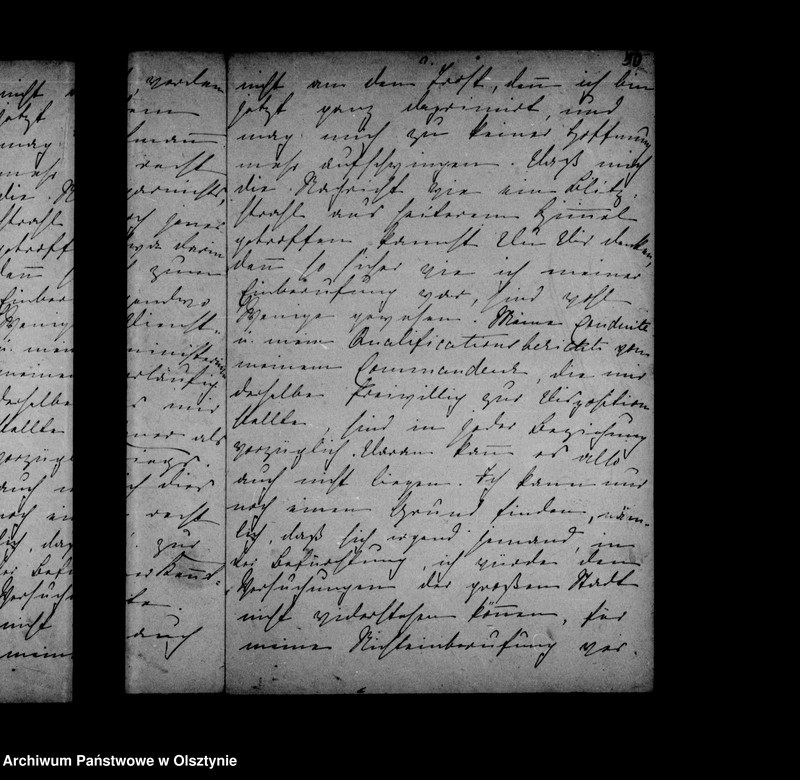 30
nicht an dem Trost, denn ich bin
jetzt ganz deprimirt, und
mag mich zu keiner Hoffnung
mehr aufschwingen. Daß mich
die Nachricht wie ein Blitz-
strahl aus heiterem Himmel
getroffen kannst Du Dir denken,
denn so sicher wie ich meiner
Einberufung war, sind wohl
Wenige gewesen. Meine Conduite
u. mein Qualificationsbericht vom
meinem Commandeur, die mir
derselbe freiwillig zur Disposition
stellte, sind in jeder Beziehung
vorzüglich. Daran kann es also
auch nicht liegen. Ich kann nur
noch einen Grund finden, näm-
lich, daß sich irgend jemand, in
der Befürchtung, ich würde den
Versuchungen der großen Stadt
nicht widerstehen können, für
meine Nichteinberufung ver-
Archiwum Państwowe w Olsztynie